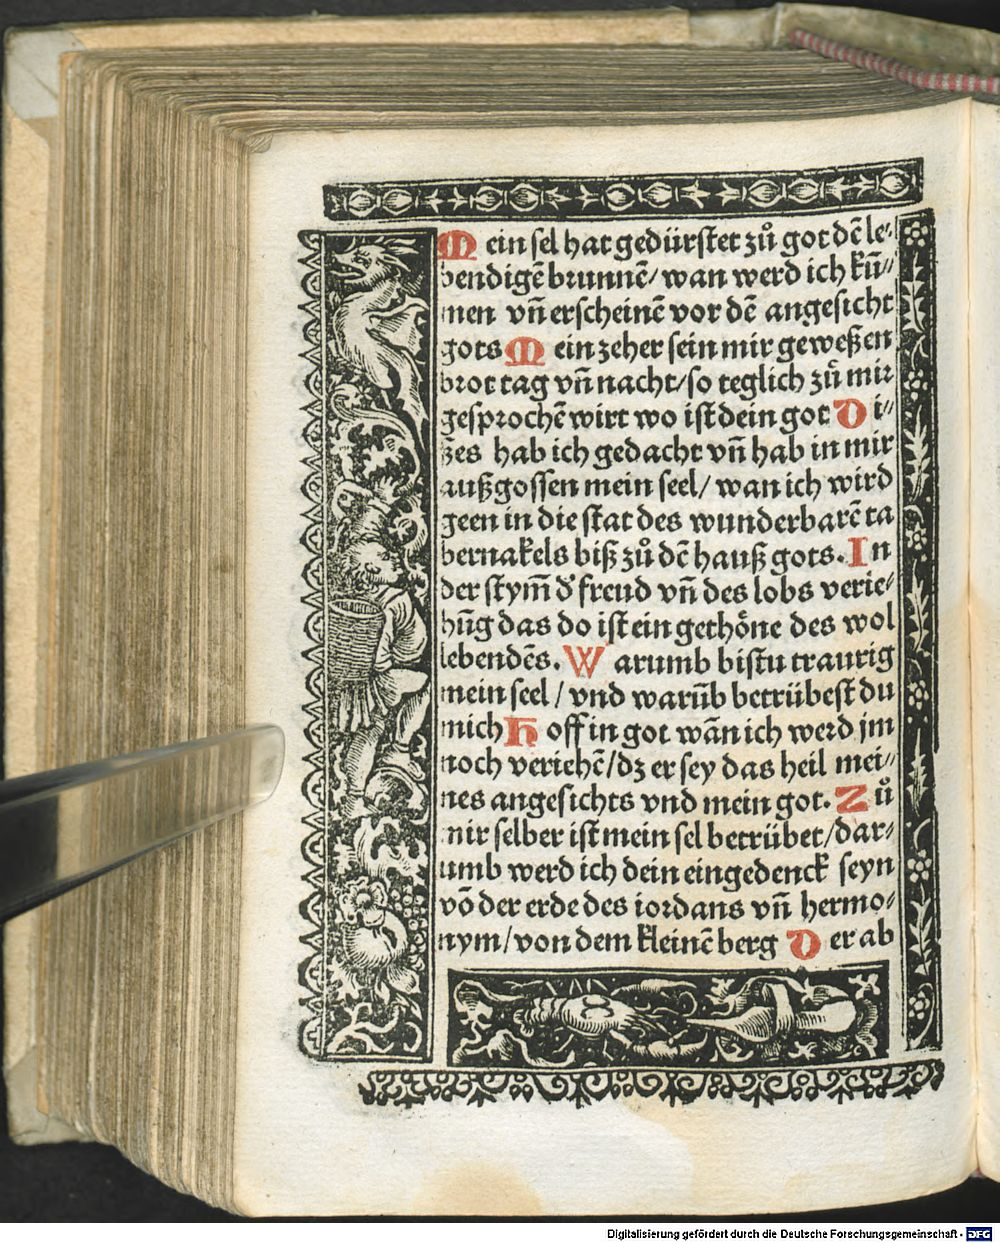 Mein sel hat gedürstet zů got dē le⸗
bendigē brunnē/ wan werd ich kū⸗
men vñ erscheinē vor dē angesicht
gots Mein zeher sein mir geweßen
brot tag vñ nacht/ so teglich zů mir
gesprochē wirt wo ist dein got Di⸗
ßes hab ich gedacht vñ hab in mir
außgossen mein seel/ wan ich wird
geen in die stat des wunderbarē ta
bernakels biß zů dē hauß gots. In
der stym̄ d̕ freud vñ des lobs verie⸗
hūg das do ist ein gethöne des wol
lebendēs. Warumb bistu traurig
mein seel/ vnd warūb betrübest du
mich Hoff in got wān ich werd jm
noch veriehē/ dz er sey das heil mei⸗
nes angesichts vnd mein got. Zů
mir selber ist mein sel betrübet/ dar⸗
umb werd ich dein eingedenck seyn
vō der erde des iordans vñ hermo⸗
nym/ von dem kleinē berg Der ab
Digitalisierung gefördert durch die Deutsche Forschungsgemeinschaft - DFG